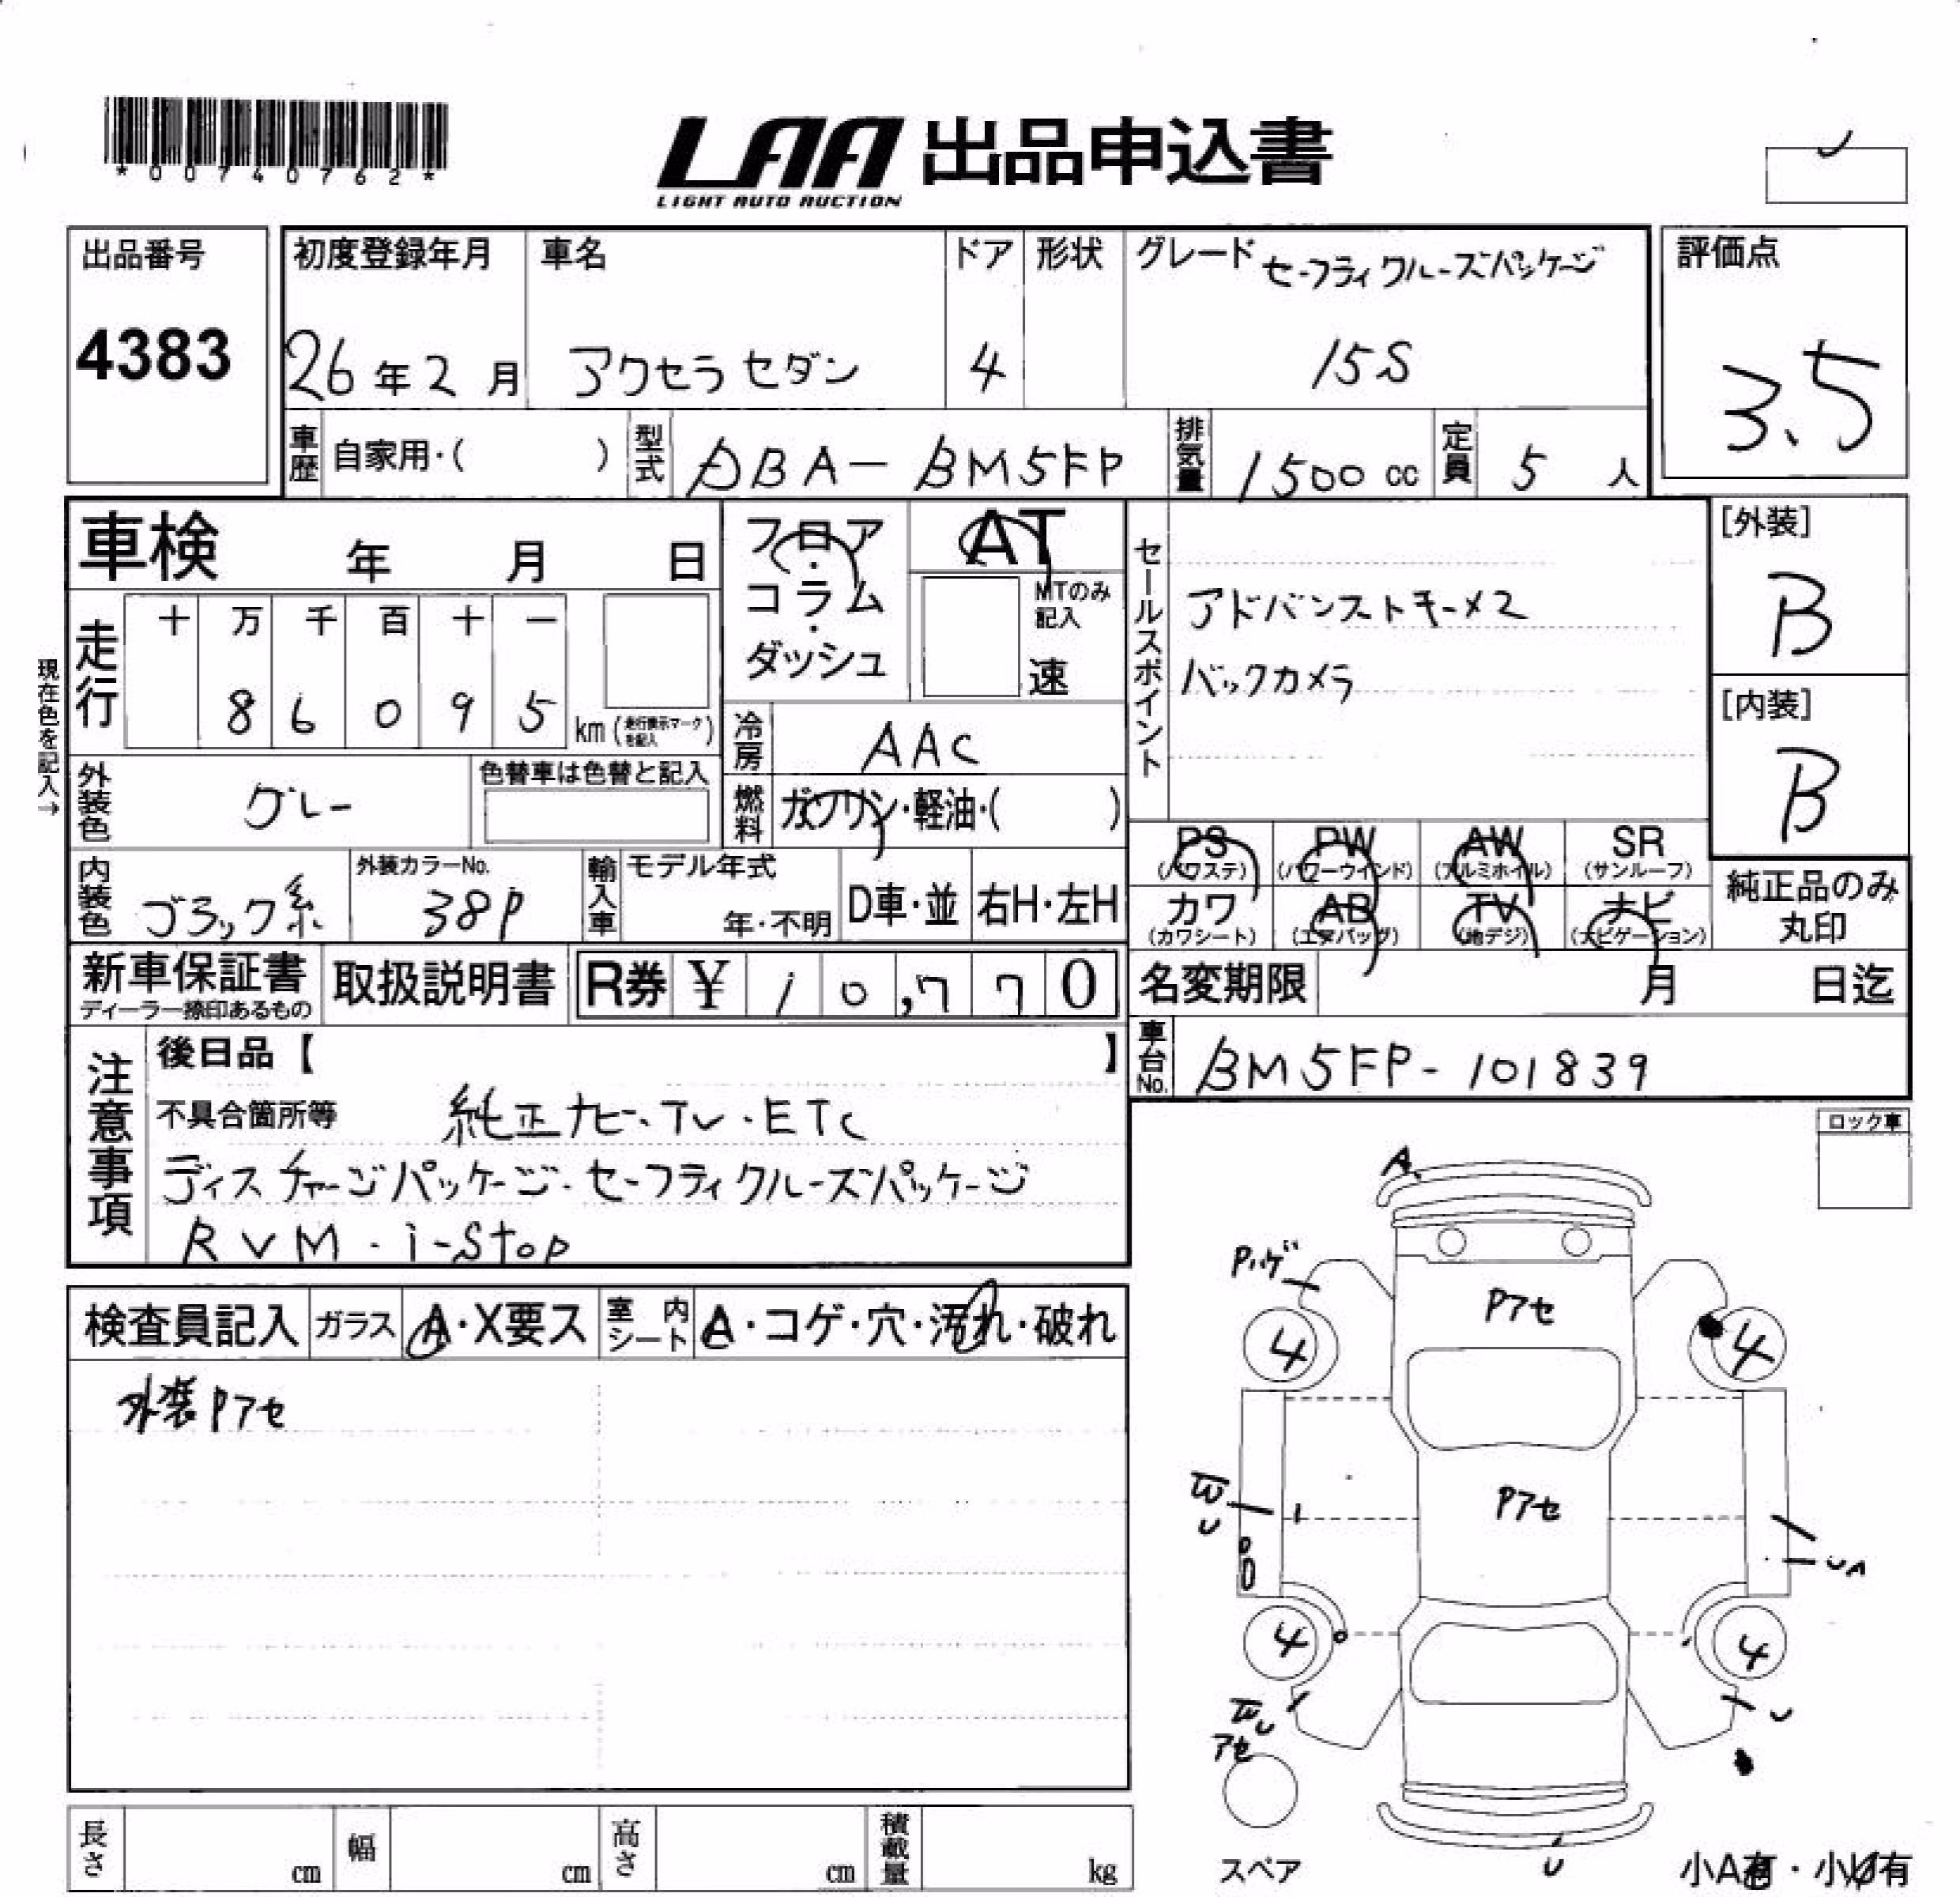 *00740762*
LAA 出品申込書
LIGHT AUTO AUCTION
出品番号
4383
初度登録年月
26年2月
車名
アクセラ セダン
ドア
4
形状
グレード セーフティクルーズパッケージ
15S
評価点
3.5
車歴 自家用・( )
型式 DBA-BM5FP
排気量 1500 cc
定員 5 人
車検 年 月 日
フロア・コラム・ダッシュ
AT
MTのみ記入
速
セールスポイント
アドバンストキー×2
バックカメラ
[外装]
B
[内装]
B
現在色を記入→
走行 十 万 千 百 十 一
8 6 0 9 5 km (走行表示マークを記入)
冷房 AAC
外装色 グレー
色替車は色替と記入
燃料 ガソリン・軽油・( )
PS (パワステ) PW (パワーウインド) AW (アルミホイル) SR (サンルーフ)
カワ (カワシート) AB (エアバッグ) TV (地デジ) ナビ (ナビゲーション)
純正品のみ丸印
内装色 ブラック系
外装カラーNo. 38P
輸入車 モデル年式
年・不明 D車・並 右H・左H
新車保証書
ディーラー捺印あるもの
取扱説明書
R券 ¥ 10,770
名変期限 月 日迄
車台No. BM5FP-101839
注意事項
後日品【 】
不具合箇所等 純正ナビ・TV・ETC
ディスチャージパッケージ・セーフティクルーズパッケージ
RVM・i-stop
ロック車
検査員記入 ガラス A・X要ス 室内シート A・コゲ・穴・汚れ・破れ
外装Pアセ
A
Pハゲ
Pアセ
4 4
Pアセ
U
UA
4 4
U
アセ
U
U
スペア
小A有・小U有
長さ cm 幅 cm 高さ cm 積載量 kg